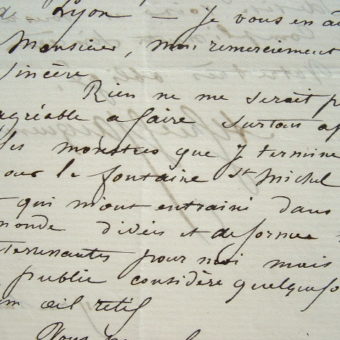 de Lyon — je vous en a
Monsieur, mon remerciement
sincère
Rien ne me serait p
agréable a faire surtout ap
les monstres que je termine
pour la fontaine St Michel
et qui m'ont entrainé dans
monde d'idées et de formes
interessantes pour moi mais
public considère quelquefo
un œil rétif
Vous